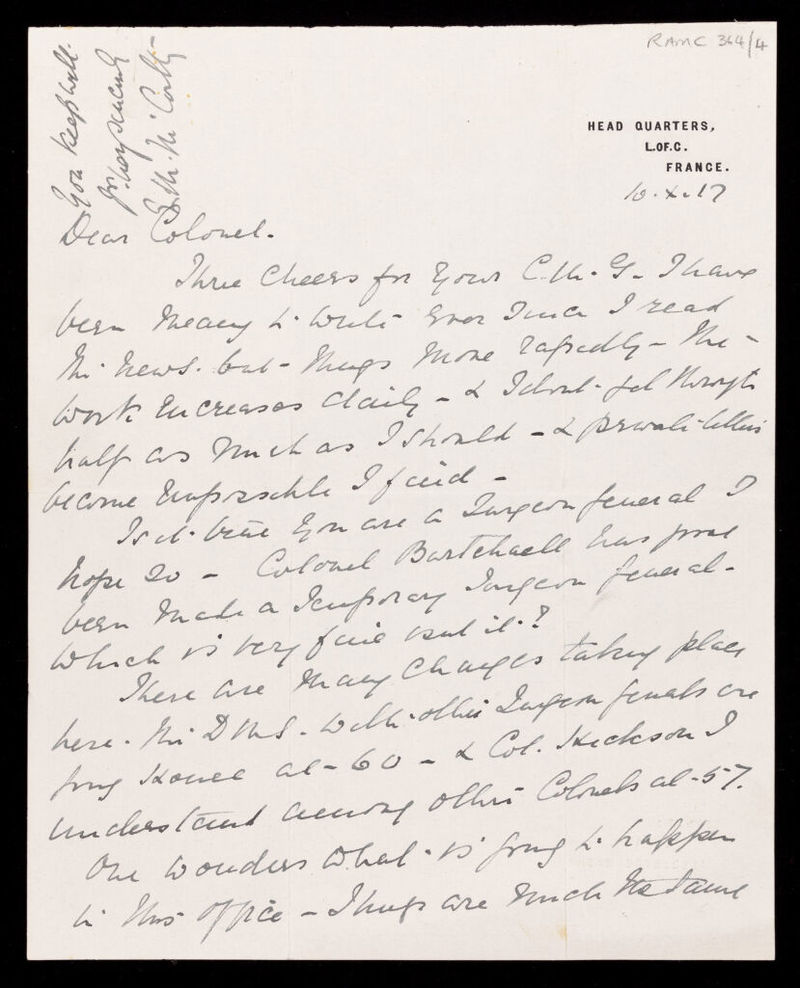 RAMC 364/4
HEAD QUARTERS,
L.OF.C.
FRANCE.
10.X.17
You keep well.
Yrs very sincerely
E.M. McCarthy
Dear Colonel.
Three Cheers for your C.M.G. I have
been meaning to write ever since I read
the news. but things move rapidly - the
work increases daily - & I don't get through
half as much as I should - & private letters
become impossible I find -
Is it true you are a Surgeon General I
hope so - Colonel Bartchaell has just
been made a Temporary Surgeon General -
which is very fine isn't it?
There are many changes taking place
here. The DMS. with other Surgeon Generals are
going Home at - 60 - & Col. Hickson I
understand among other Colonels at - 57.
One wonders what is going to happen
in this office - Things are much the same